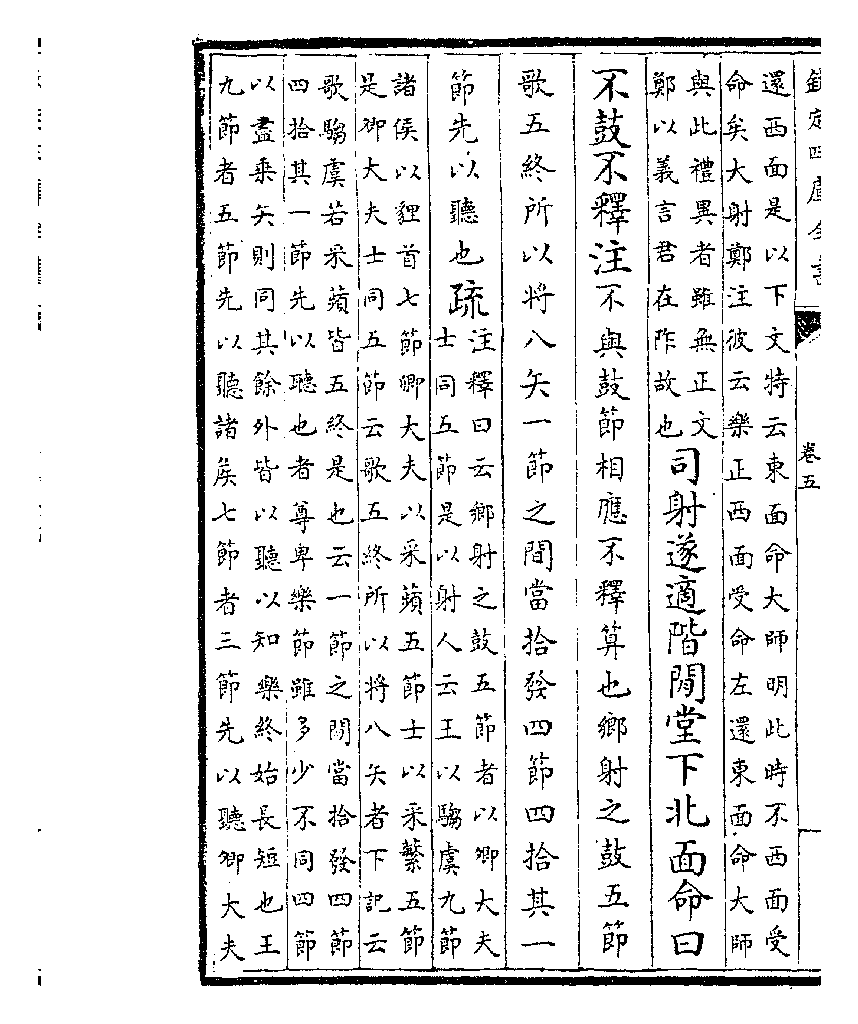 欽定四庫全書
卷五
還西面是以下文特云東面命大師明此時不西面受
命矣大射鄭注彼云樂正西面受命左還東面命大師
與此禮異者雖無正文
鄭以義言君在阼故也
司射遂適階間堂下北面命曰
不鼓不釋注不與鼓節相應不釋算也鄉射之鼓五節
歌五終所以將八矢一節之間當拾發四節四拾其一
節先以聽也疏
注釋曰云鄉射之鼓五節者以卿大夫
士同五節是以射人云王以騶虞九節
諸侯以貍首七節卿大夫以采蘋五節士以采蘩五節
是卿大夫士同五節云歌五終所以將八矢者下記云
歌騶虞若采蘋皆五終是也云一節之間當拾發四節
四拾其一節先以聽也者尊卑樂節雖多少不同四節
以盡乘矢則同其餘外皆以聽以知樂終始長短也王
九節者五節先以聽諸侯七節者三節先以聽卿大夫